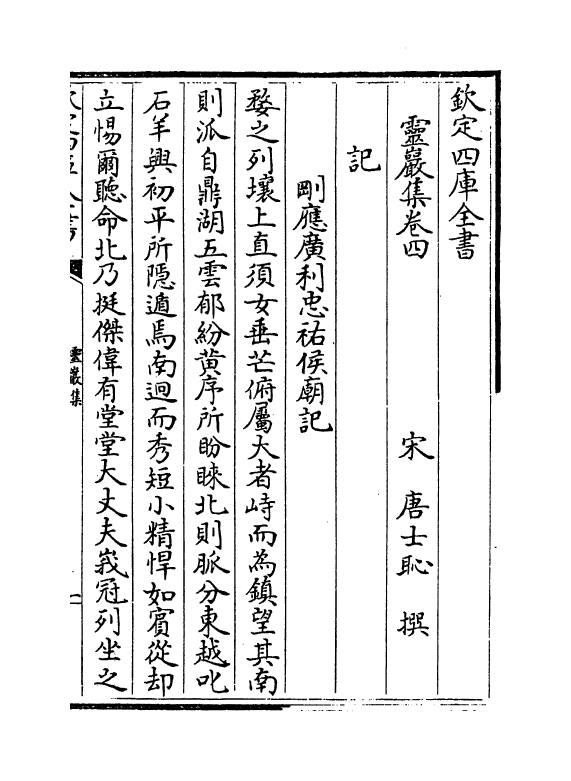 欽定四庫全書
靈巖集卷四
宋 唐士恥 撰
記
剛應廣利忠祐侯廟記
婺之列壤上直須女垂芒俯屬大者峙而為鎮望其南
則派自鼎湖五雲郁紛黄序所盼睞北則脈分東越叱
石羊興初平所隱遁焉南迥而秀短小精悍如賓從却
立惕爾聽命北乃挺傑偉有堂堂大丈夫峩冠列坐之
靈巖集
一